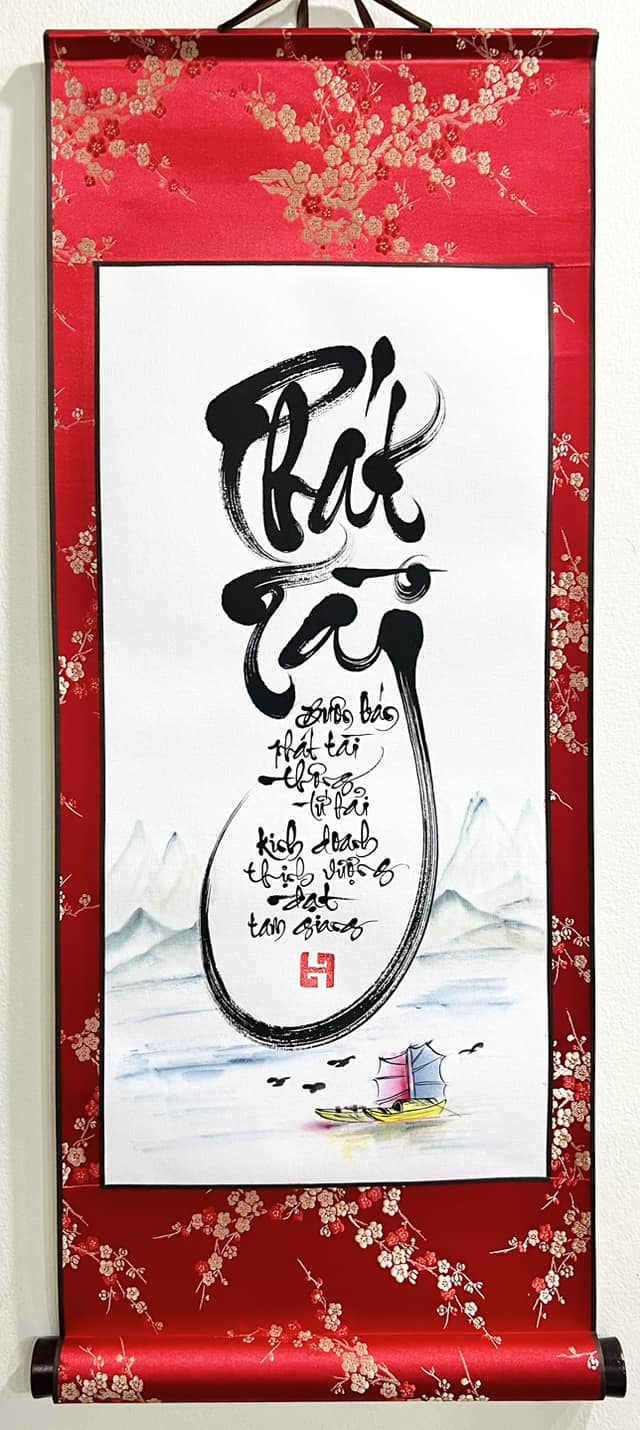 Phát
Tài
Buôn bán
phát tài
thông
tứ hải
kinh doanh
thịnh vượng
đạt
tam giang